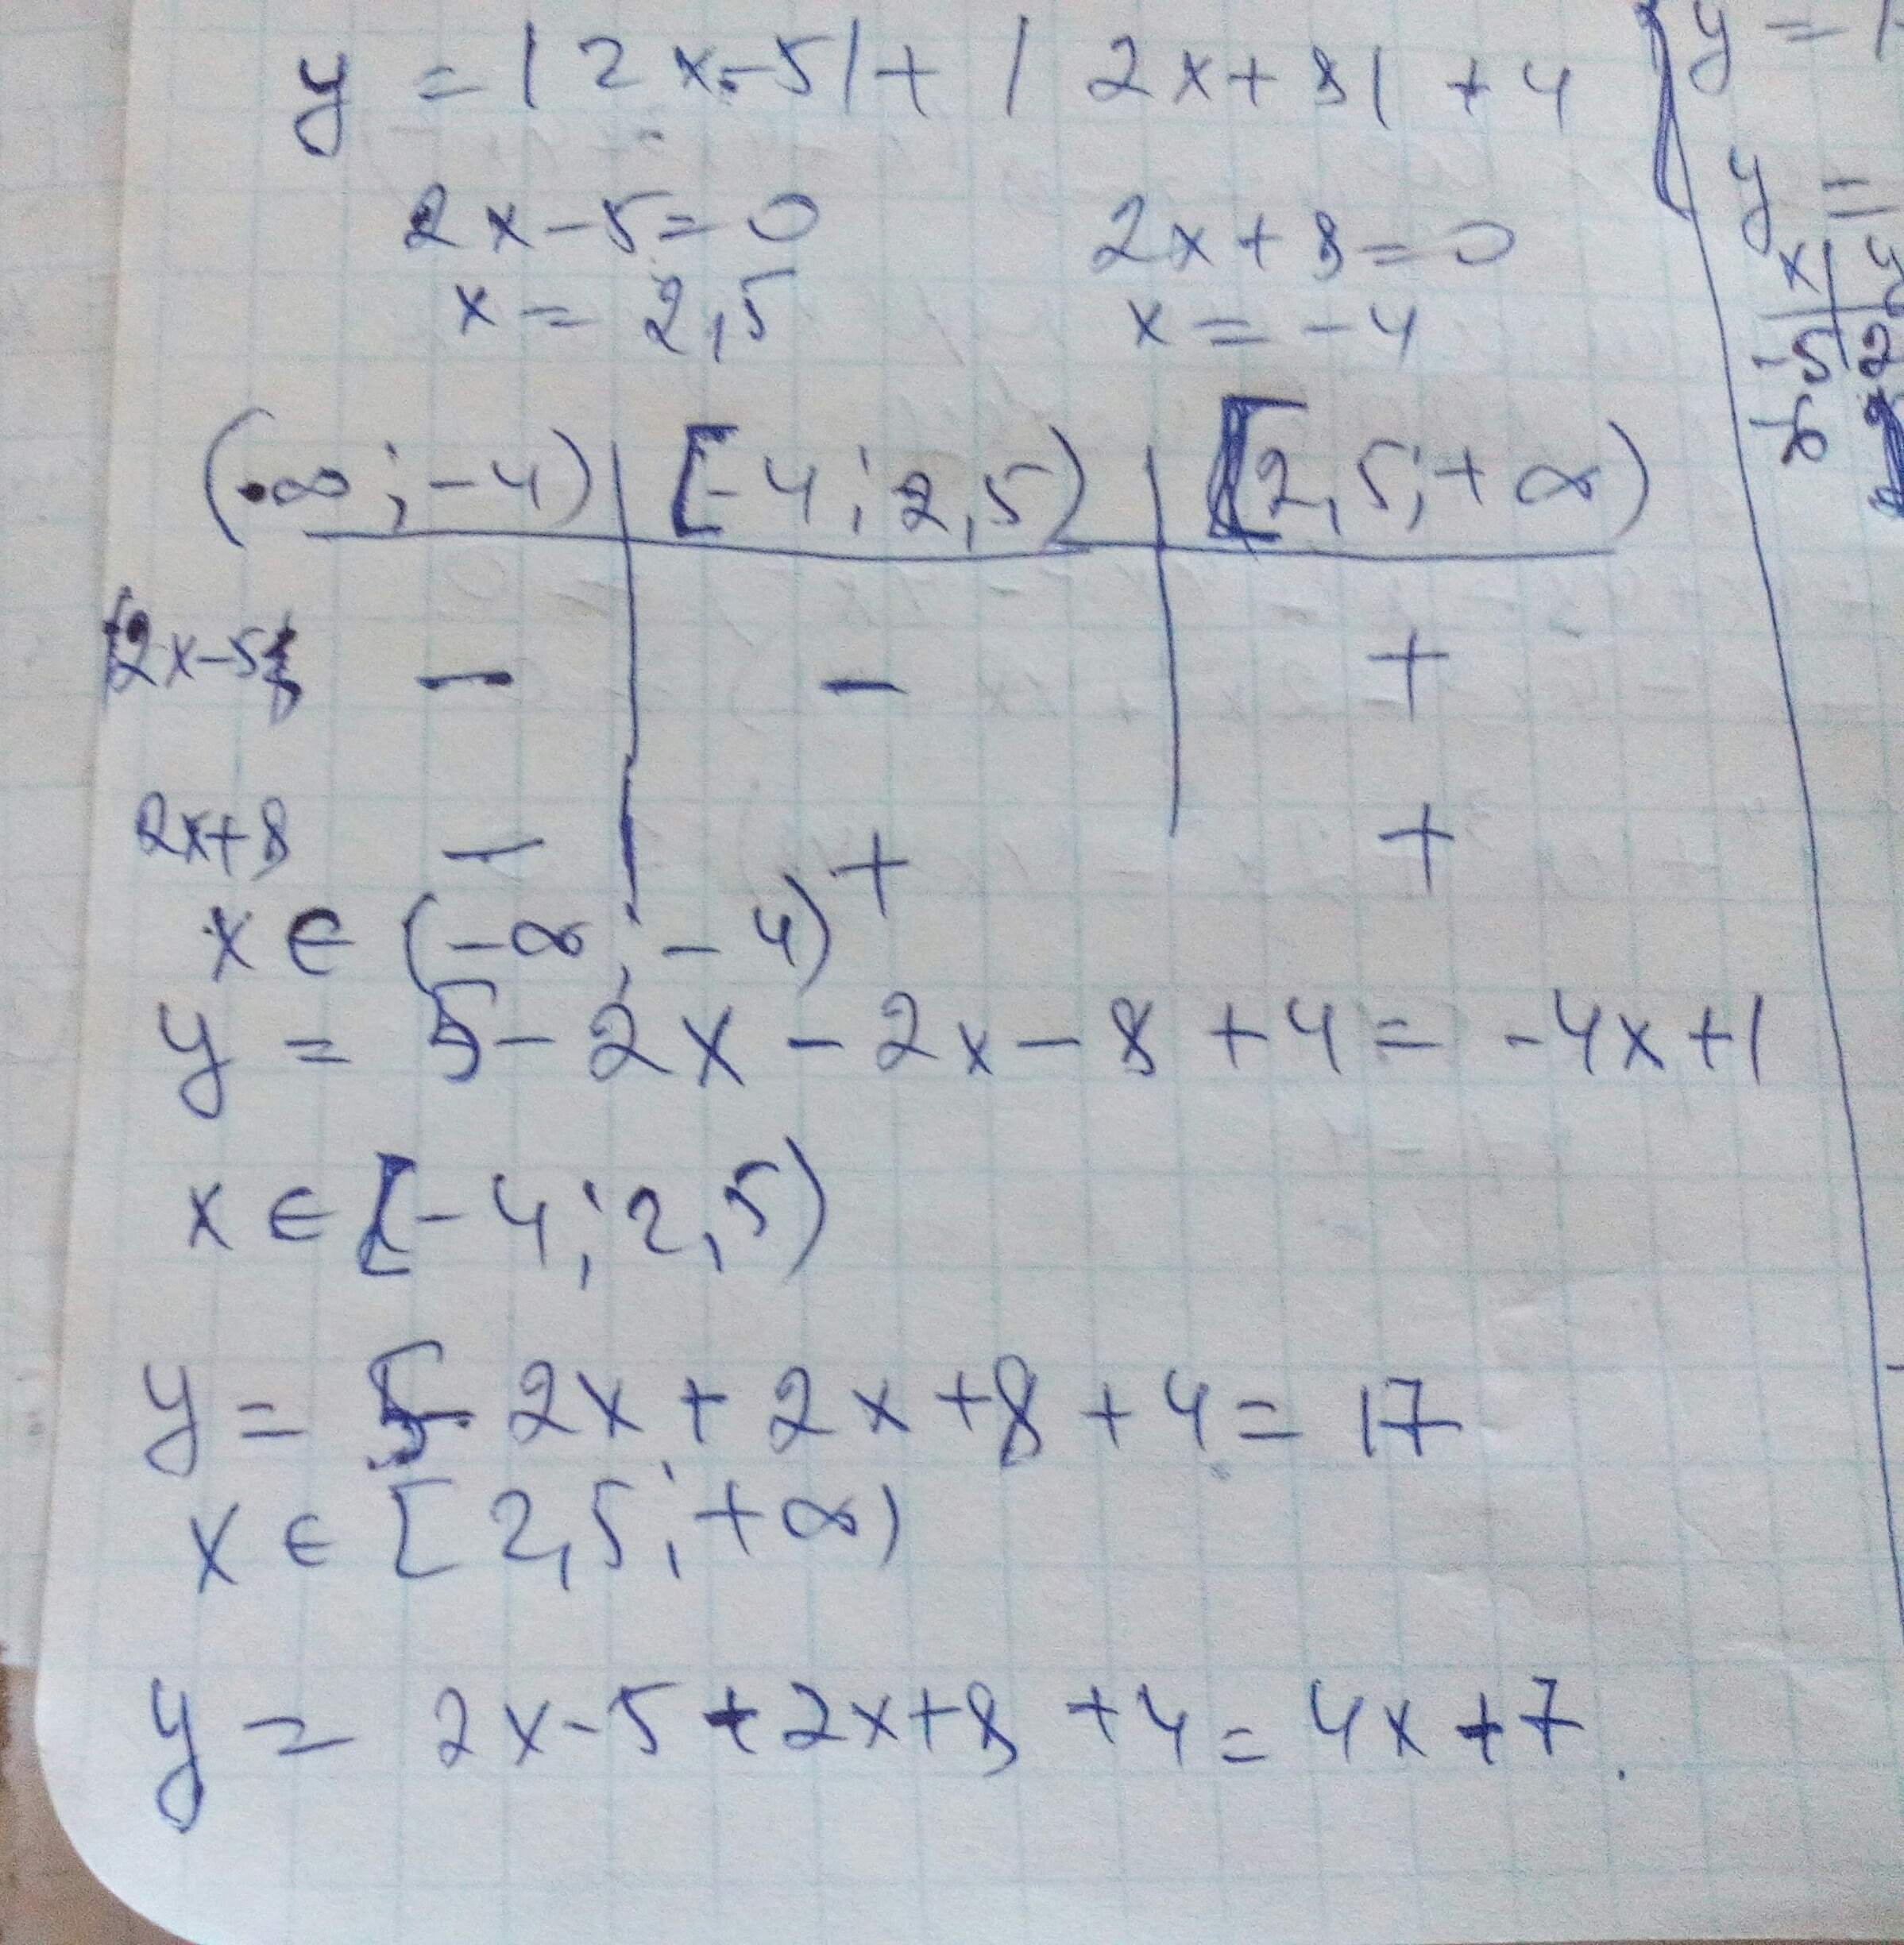 y = |2x-5| + |2x+8| + 4
2x-5=0 2x+8=0
x = 2,5 x = -4
(-∞; -4) | [-4; 2,5) | [2,5; +∞)
2x-5 - - +
2x+8 - + +
x ∈ (-∞; -4)
y = 5-2x-2x-8+4 = -4x+1
x ∈ [-4; 2,5)
y = 5-2x+2x+8+4 = 17
x ∈ [2,5; +∞)
y = 2x-5+2x+8+4 = 4x+7.
y =
y =
x | y
-5 | 2
-6